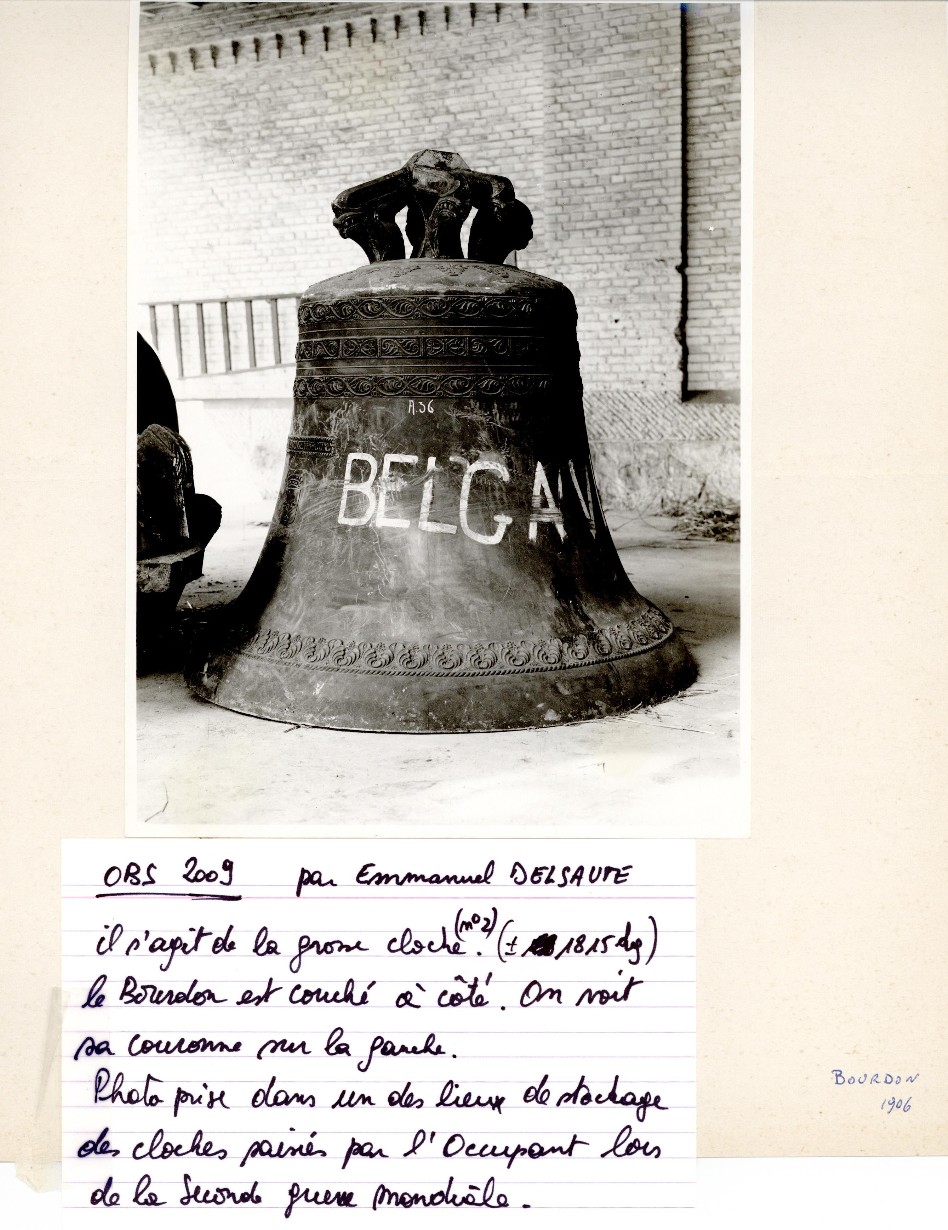 A.36
BELGA
OBS 2009 par Emmanuel DELSAUTE
il s'agit de la grosse cloche (n° 2). (± 1815 kg)
le Bourdon est couché à côté. On voit
sa couronne sur la gauche.
Photo prise dans un des lieux de stockage
des cloches saisies par l'Occupant lors
de la Seconde guerre Mondiale.
BOURDON
1906